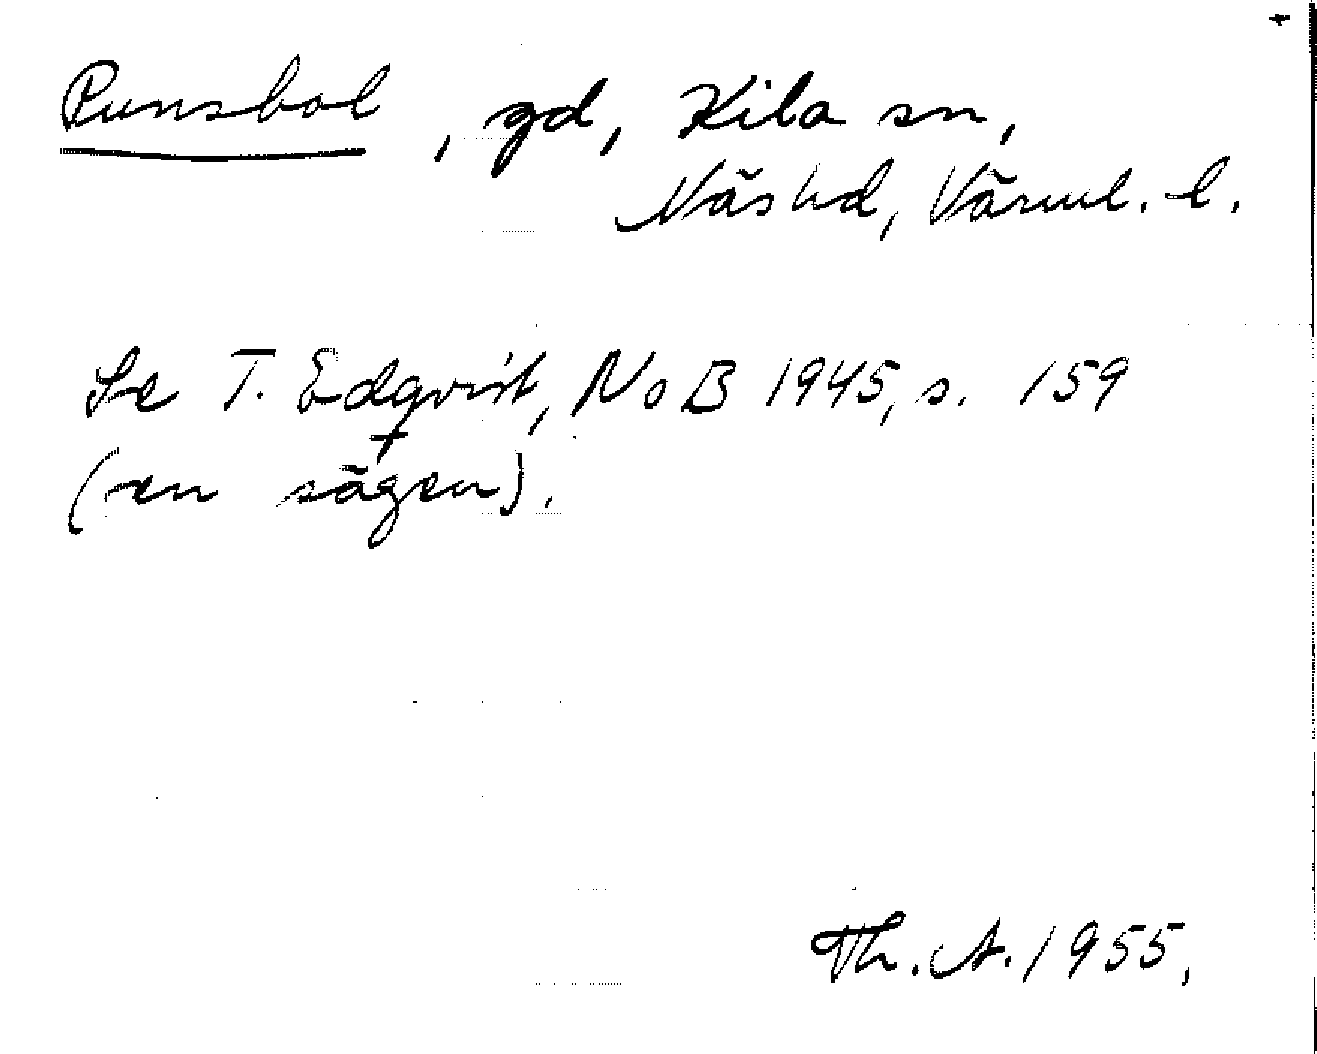 Punsbol, gd, Kila sn,
Näs hd, Värml. l.
Se T. Edqvist, NoB 1945, s. 159
(en sägen).
Th. A. 1955.